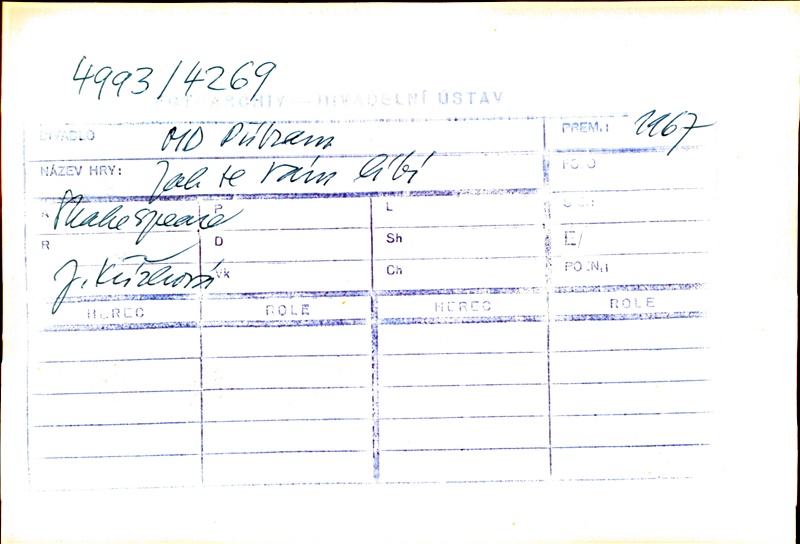 4993/4269
FOTOARCHIV – DIVADELNÍ ÚSTAV
DIVADLO OD Příbram PREM.: 1967
NÁZEV HRY: Jak se Vám líbí FOTO
Shakespeare P L
R D Sh E/
J. Vk Ch POZN.:
HEREC ROLE HEREC ROLE